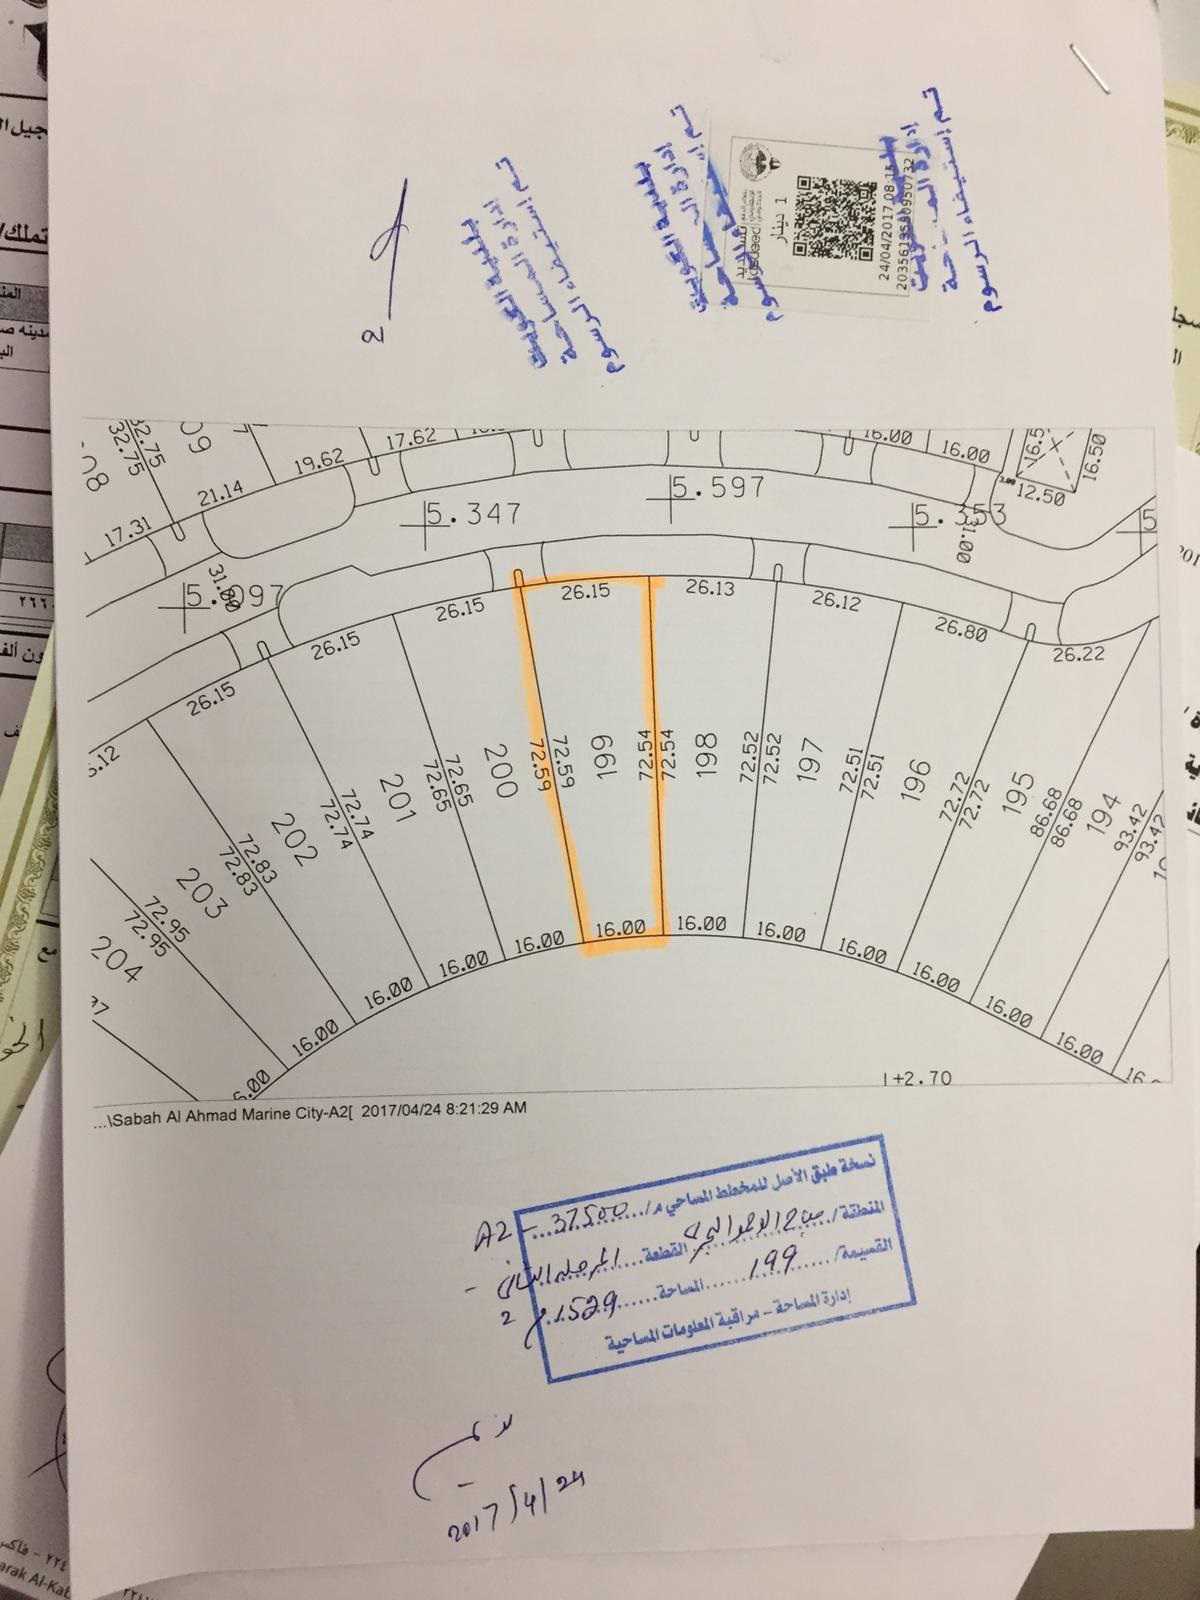 بلدية الكويت
إدارة المساحة
تم إستيفاء الرسوم
بلدية الكويت
1 دينار
24/04/2017 08:1
بلدية الكويت
إدارة المساحة
تم إستيفاء الرسوم
32.75
32.75
17.31
21.14
19.62
17.62
16.00
16.00
16.5
16.50
12.50
5.347
5.597
5.353
31.00
5.097
31.00
5
5.12
26.15
26.15
26.15
26.15
26.13
26.12
26.80
26.22
204
72.95
72.95
203
72.83
72.83
202
72.74
72.74
201
72.65
72.65
200
72.59
72.59
199
72.54
72.54
198
72.52
72.52
197
72.51
72.51
196
72.72
72.72
195
86.68
86.68
194
93.42
93.42
16.00
16.00
16.00
16.00
16.00
16.00
16.00
16.00
16.00
16.00
16.00
+2.70
...\Sabah Al Ahmad Marine City-A2[ 2017/04/24 8:21:29 AM
نسخة طبق الأصل للمخطط المساحي م/ 37500 - A2
المنطقة/ صباح الاحمد البحرية القطعة المرحلة الثانية
القسيمة/ 199 المساحة 1529 م2
إدارة المساحة - مراقبة المعلومات المساحية
2017/4/24